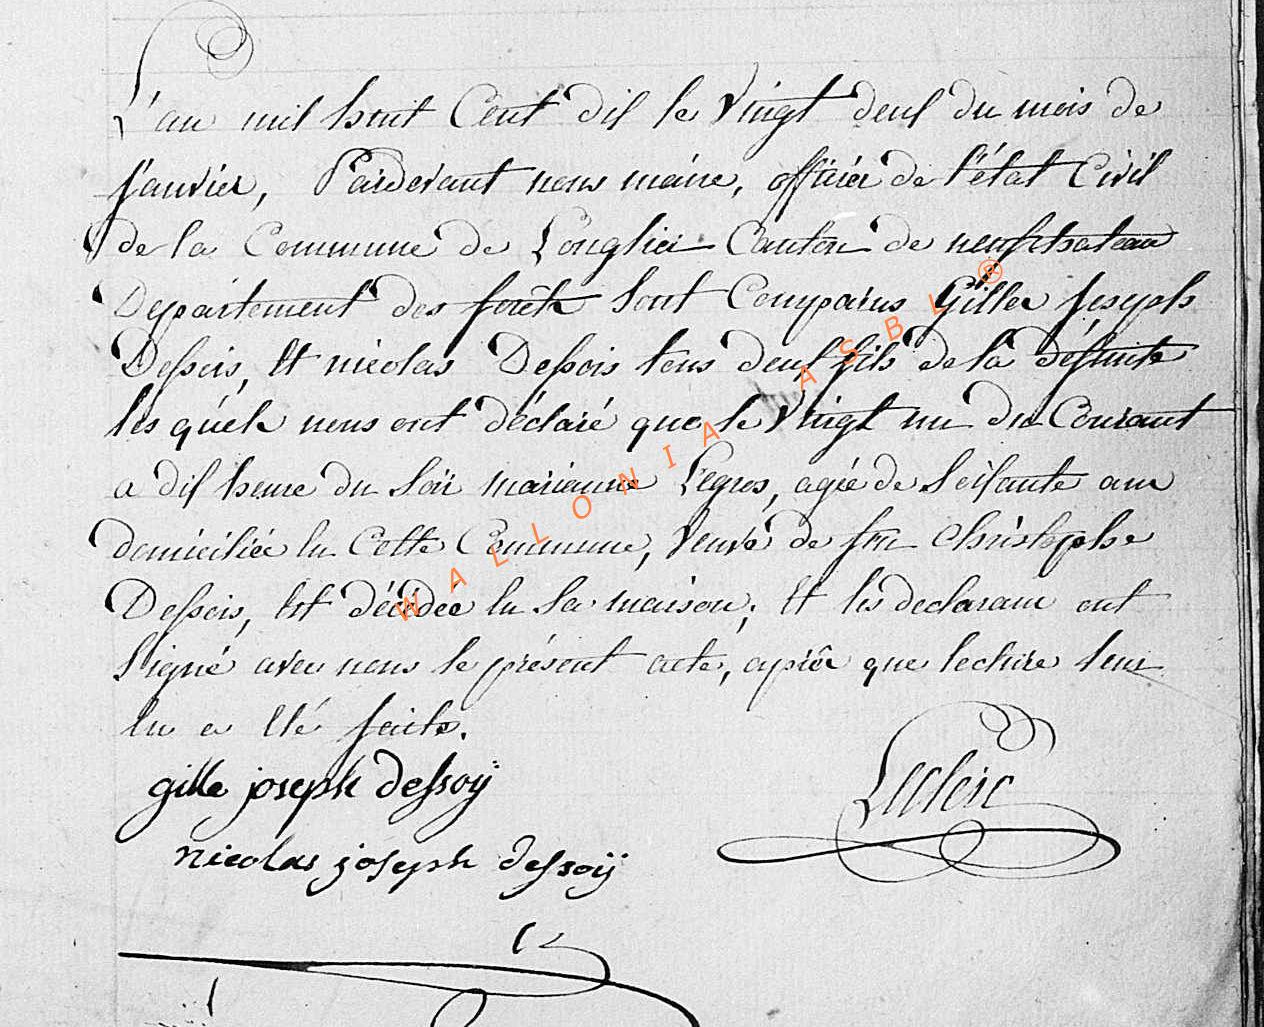 L'an mil huit Cent dix le Vingt deux du mois de
Janvier, Pardevant nous maire, officier de l'état Civil
de la Commune de Longlier Canton de neufchateau
Departement des forêts sont Comparus Gilles Joseph
Dessois, Et nicolas Dessois tous deux fils de la défunte
les quéls nous ont déclaré que le Vingt un du Courant
a dix heure du soir marianne Legros, agée de soixante ans
domiciliée en Cette Commune, veuve de feu Christophe
Dessois, Est décédée en sa maison, Et les declarans ont
signé avec nous le présent acte, après que lecture leur
en a été faite.
gille joseph dessoÿ
Leclerc
nicolas joseph dessoÿ
WALLONIA ASBL ®